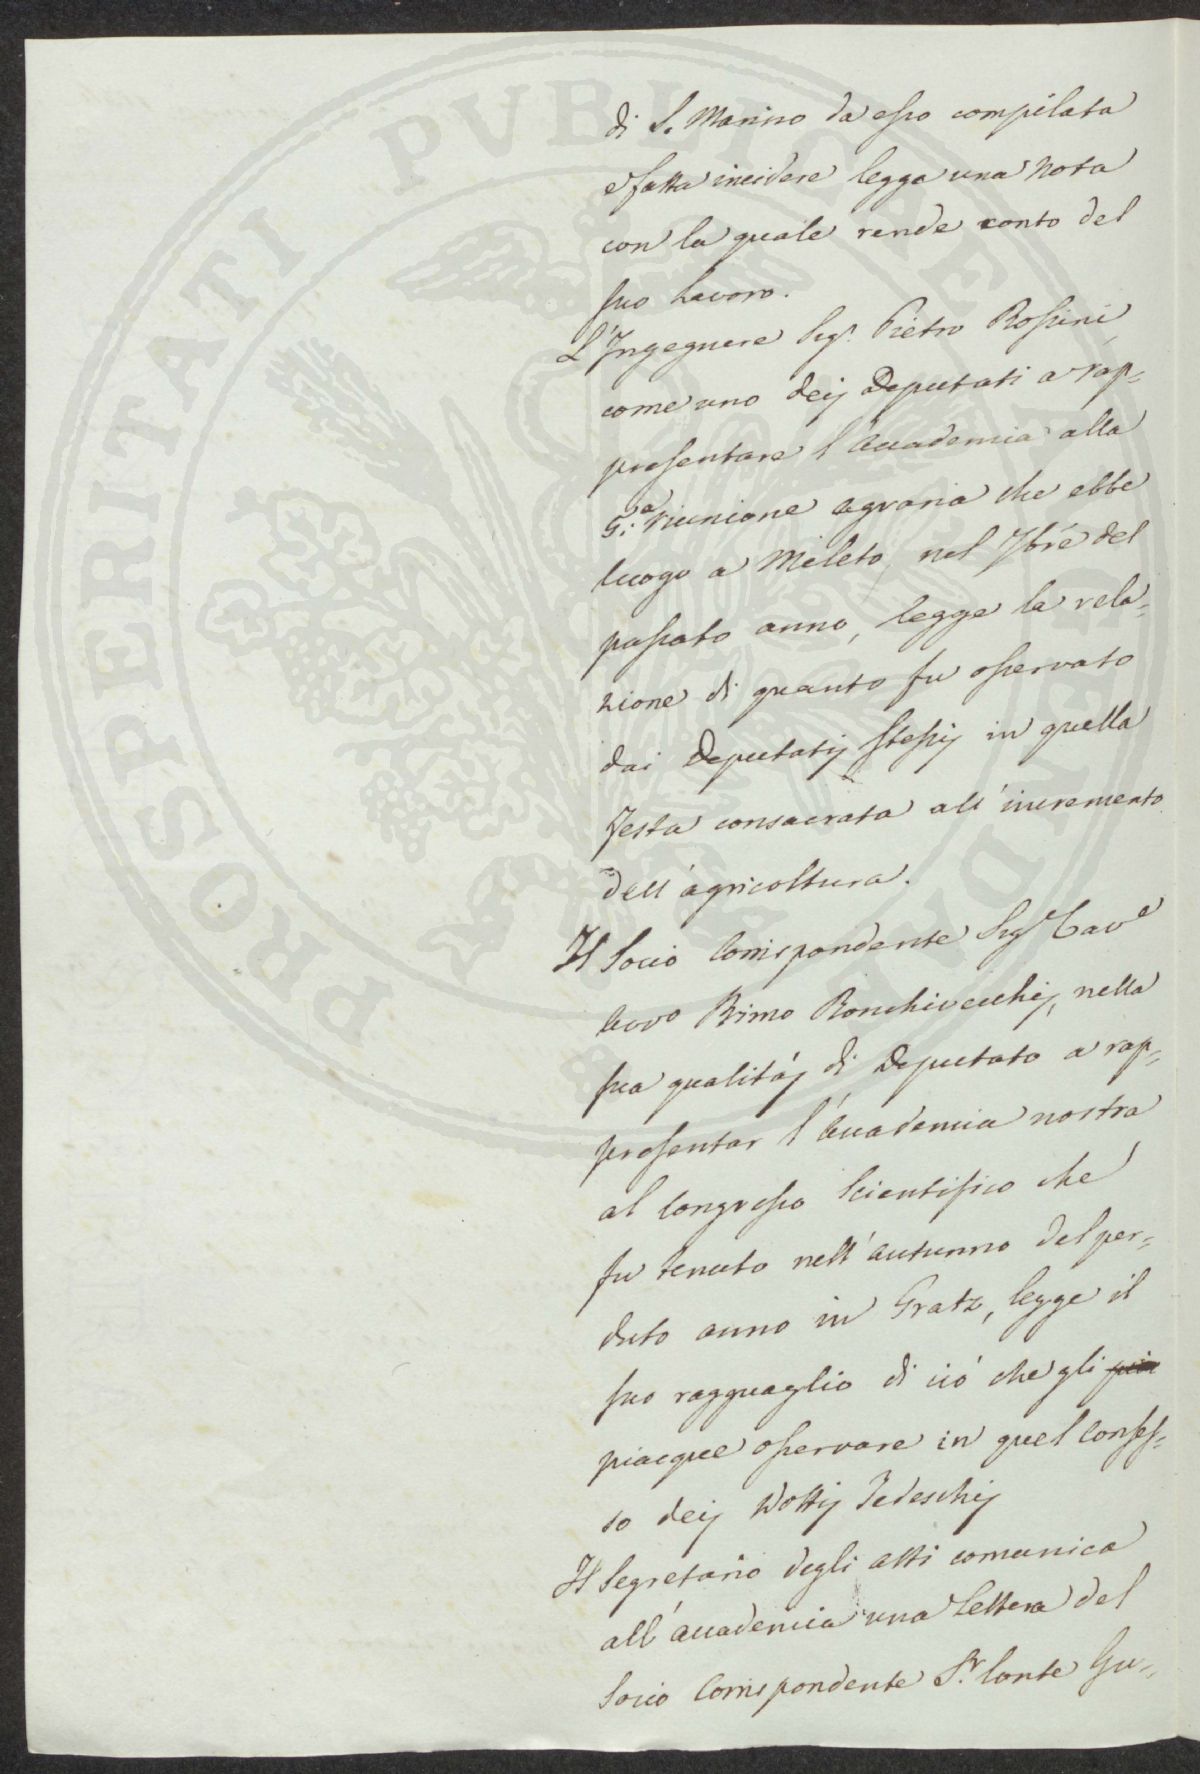 PROSPERITATI PVBLICAE AVGENDAE
di S. Marino da esso compilata
e fatta incidere legge una Nota
con la quale rende conto del
suo lavoro.
L'Ingegnere Sigr. Pietro Rossini
come uno dej Deputati a rap=
presentare l'Accademia alla
5.a riunione agraria che ebbe
luogo a Meleto, nel 7bre del
passato anno, legge la rela=
zione di quanto fu osservato
dai Deputatij stessij in quella
Festa consacrata all'incremento
dell'agricoltura.
Il Socio Corrispondente Sigr Cave
Avvo Primo Ronchivecchij, nella
sua qualitáj di Deputato a rap=
presentar l'Accademia nostra
al Congresso Scientifico che
fu tenuto nell'autunno del per=
duto anno in Gratz, legge il
suo ragguaglio di ció che gli
piacque osservare in quel Conses=
so dej Dottij Tedeschij
Il Segretario degli atti comunica
all'accademia una Lettera del
Socio Corrispondente Sr. Conte Gu=